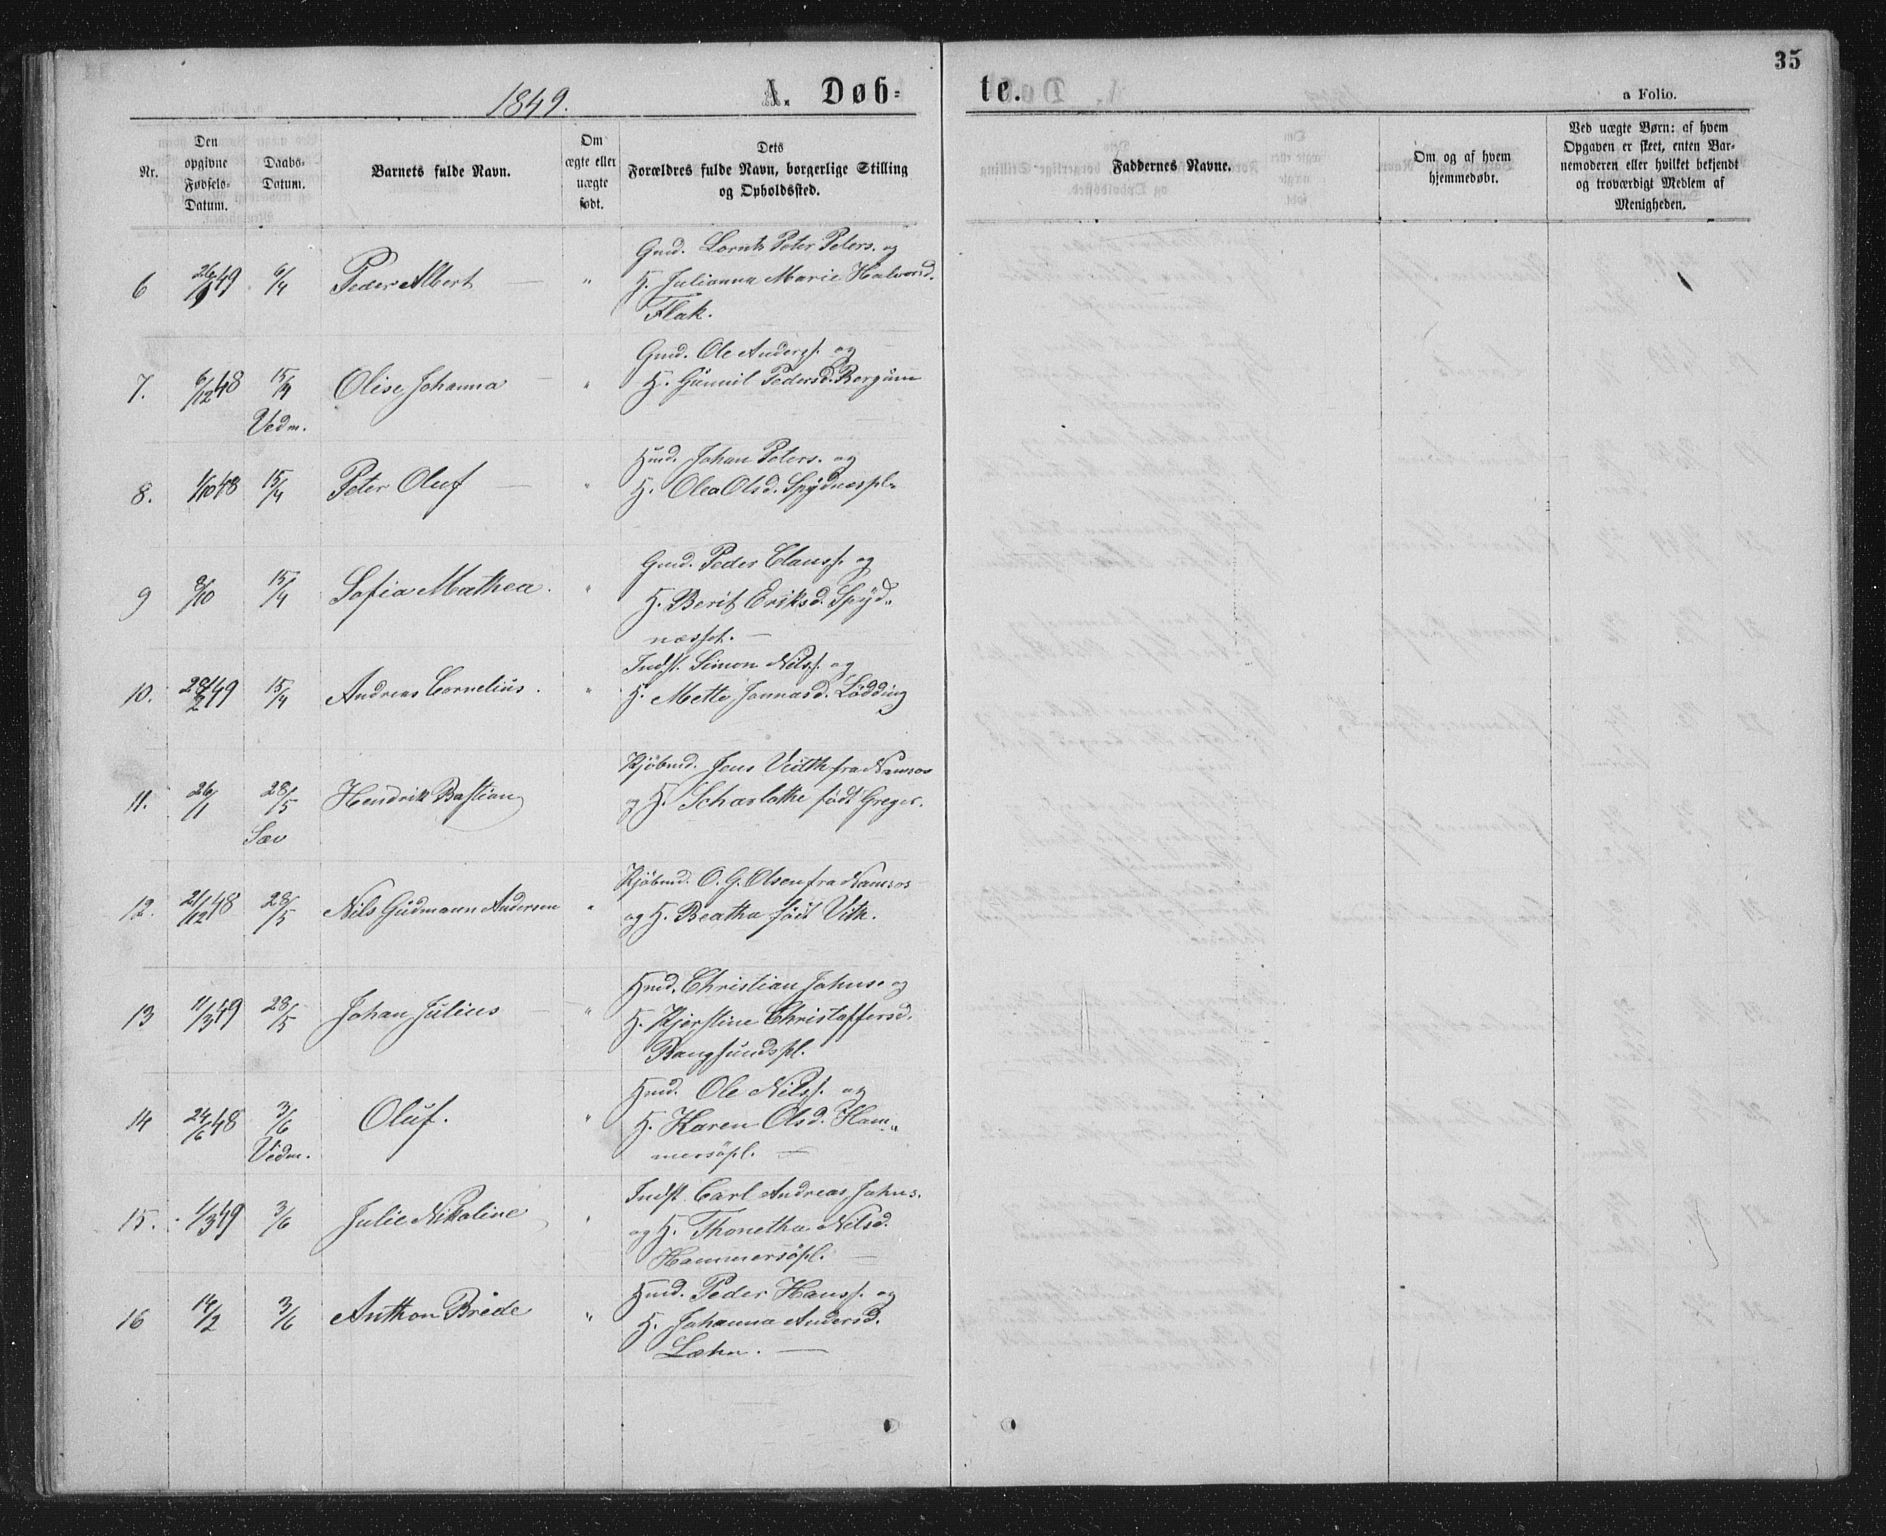 35
1849.
A. Døb-
te.
a Folio.
Nr.
Den opgivne Fødsels-Datum.
Daabs-Datum.
Barnets fulde Navn.
Om ægte eller uægte født.
Dets Forældres fulde Navn, borgerlige Stilling og Opholdssted.
Faddernes Navne.
Om og af hvem hjemmedøbt.
Ved uægte Børn: af hvem Opgaven er skeet, enten Barnemoderen eller hvilket bekjendt og troværdigt Medlem af Menigheden.
Gmd. Lornts Peter Peters. og
6 26/1 49 6/4 Peder Albert — " H. Julianna Marie Halvorsd.
Flak.
Gmd. Ole Anderss. og
7. 6/12 48 15/4 Olise Johanna — " H. Gunnil Pedersd. Bergum
Vedm.
Hmd. Johan Peters. og
8. 1/10 48 15/4 Peter Oluf — " H. Olea Olsd. Spydnæspl.
Gmd. Peder Clauss. og
9 8/10 15/4 Sofia Mathea. " H. Berit Eriksd. Spyd-
næsset. —
Indst. Simon Nilss. og
10. 28/2 49 15/4 Andreas Cornelius. " H. Mette Jonnasd. Lødding
Kjöbmd. Jens Veidth fra Namsos
11. 26/1 28/5 Hendrik Bastian og H. Scharlothe født Greger.
Sæv
Kjöbmd. O. G. Olsen fra Namsos
12. 21/12 48 28/5 Nils Gudmann Andersen " og H. Beatha födt Vith.
Hmd. Christian Johns. og
13 11/3 49 28/5 Johan Julius — " H. Kjerstine Christaffersd.
Bangsundspl.
Hmd. Ole Nilss. og
14 24/6 48 3/6 Oluf. " H. Karen Olsd. Ham-
Vedm. mersöpl. —
Indst. Carl Andreas Johns.
15. 1/3 49 3/6 Julie Nikoline " og H. Thonetha Nilsd.
Hammersöpl. —
Hmd. Peder Hanss. og
16 14/2 3/6 Anthon Brede " H. Johanna Andersd.
Læhn. —